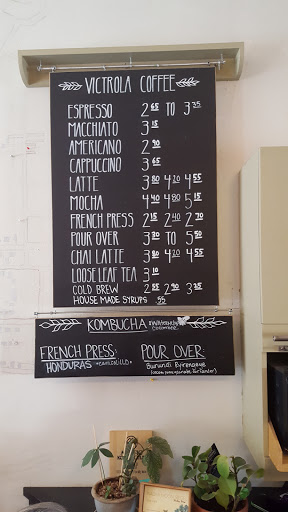 VICTROLA COFFEE
ESPRESSO 2 65 TO 3 35
MACCHIATO 3 15
AMERICANO 2 90
CAPPUCCINO 3 65
LATTE 3 80 4 20 4 55
MOCHA 4 40 4 80 5 15
FRENCH PRESS 2 15 2 40 2 70
POUR OVER 3 30 TO 5 50
CHAI LATTE 3 80 4 20 4 55
LOOSE LEAF TEA 3 10
COLD BREW 2 55 2 90 3 35
HOUSE MADE SYRUPS .55
KOMBUCHA
FRENCH PRESS:
HONDURAS
POUR OVER:
Burundi